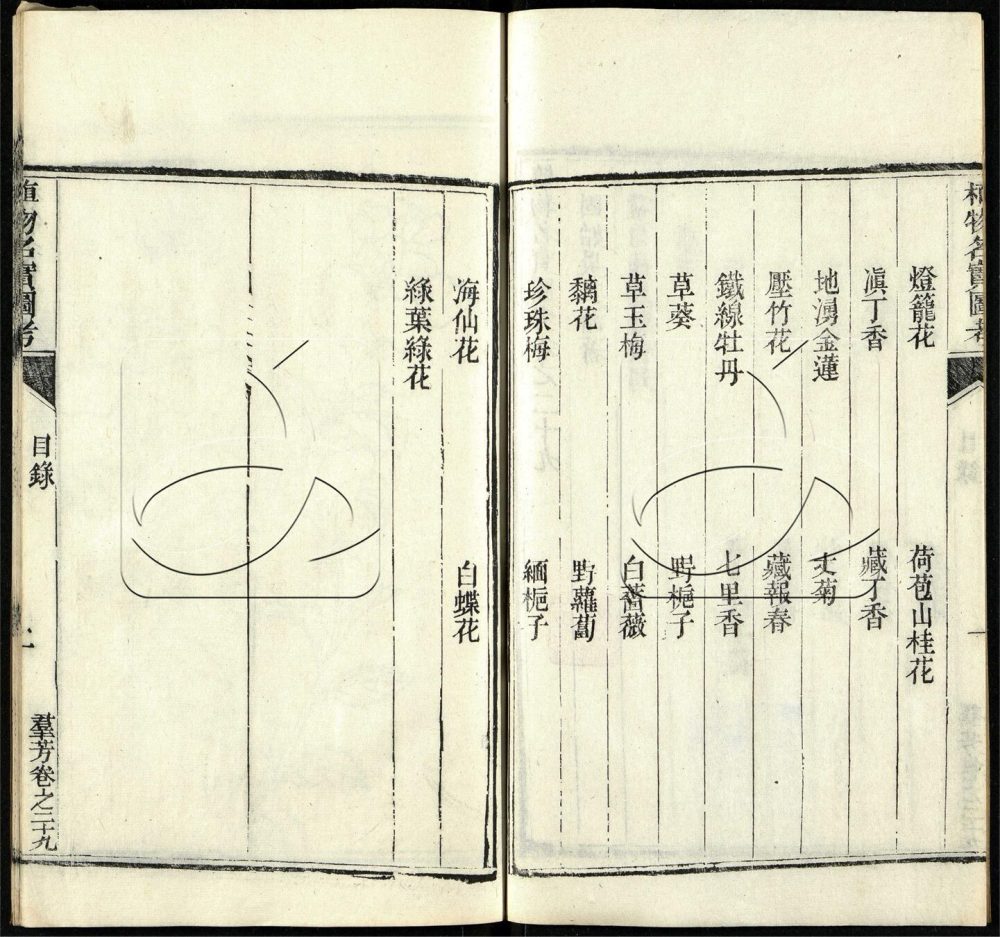 植物名實圖考
一
燈籠花 荷苞山桂花
滇丁香 藏丁香
地湧金蓮 丈菊
壓竹花 藏報春
鐵線牡丹 七里香
草葵 野梔子
草玉梅 白薔薇
黐花 野蘿蔔
珍珠梅 緬梔子
海仙花 白蝶花
綠葉綠花
植物名實圖考
目錄
羣芳卷之二十九